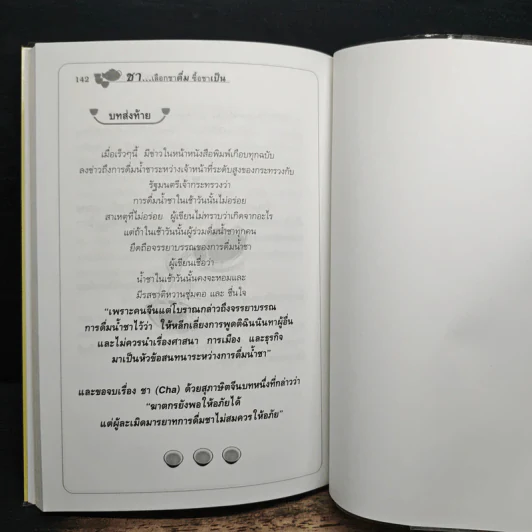 142 ชา...เลือกชาดื่ม ซื้อชาเป็น
บทส่งท้าย
เมื่อเร็วๆนี้ มีข่าวในหน้าหนังสือพิมพ์เกือบทุกฉบับ
ลงข่าวถึงการดื่มน้ำชาระหว่างเจ้าหน้าที่ระดับสูงของกระทรวงกับ
รัฐมนตรีเจ้ากระทรวงว่า
การดื่มน้ำชาในเช้าวันนั้นไม่อร่อย
สาเหตุที่ไม่อร่อย ผู้เขียนไม่ทราบว่าเกิดจากอะไร
แต่ถ้าในเช้าวันนั้นผู้ร่วมดื่มน้ำชาทุกคน
ยึดถือจรรยาบรรณของการดื่มน้ำชา
ผู้เขียนเชื่อว่า
น้ำชาในเช้าวันนั้นคงจะหอมและ
มีรสชาติหวานชุ่มคอ และ ชื่นใจ
"เพราะคนจีนแต่โบราณกล่าวถึงจรรยาบรรณ
การดื่มน้ำชาไว้ว่า ให้หลีกเลี่ยงการพูดติฉินนินทาผู้อื่น
และไม่ควรนำเรื่องศาสนา การเมือง และธุรกิจ
มาเป็นหัวข้อสนทนาระหว่างการดื่มน้ำชา"
และขอจบเรื่อง ชา (Cha) ด้วยสุภาษิตจีนบทหนึ่งที่กล่าวว่า
"ฆาตกรยังพอให้อภัยได้
แต่ผู้ละเมิดมารยาทการดื่มชาไม่สมควรให้อภัย"